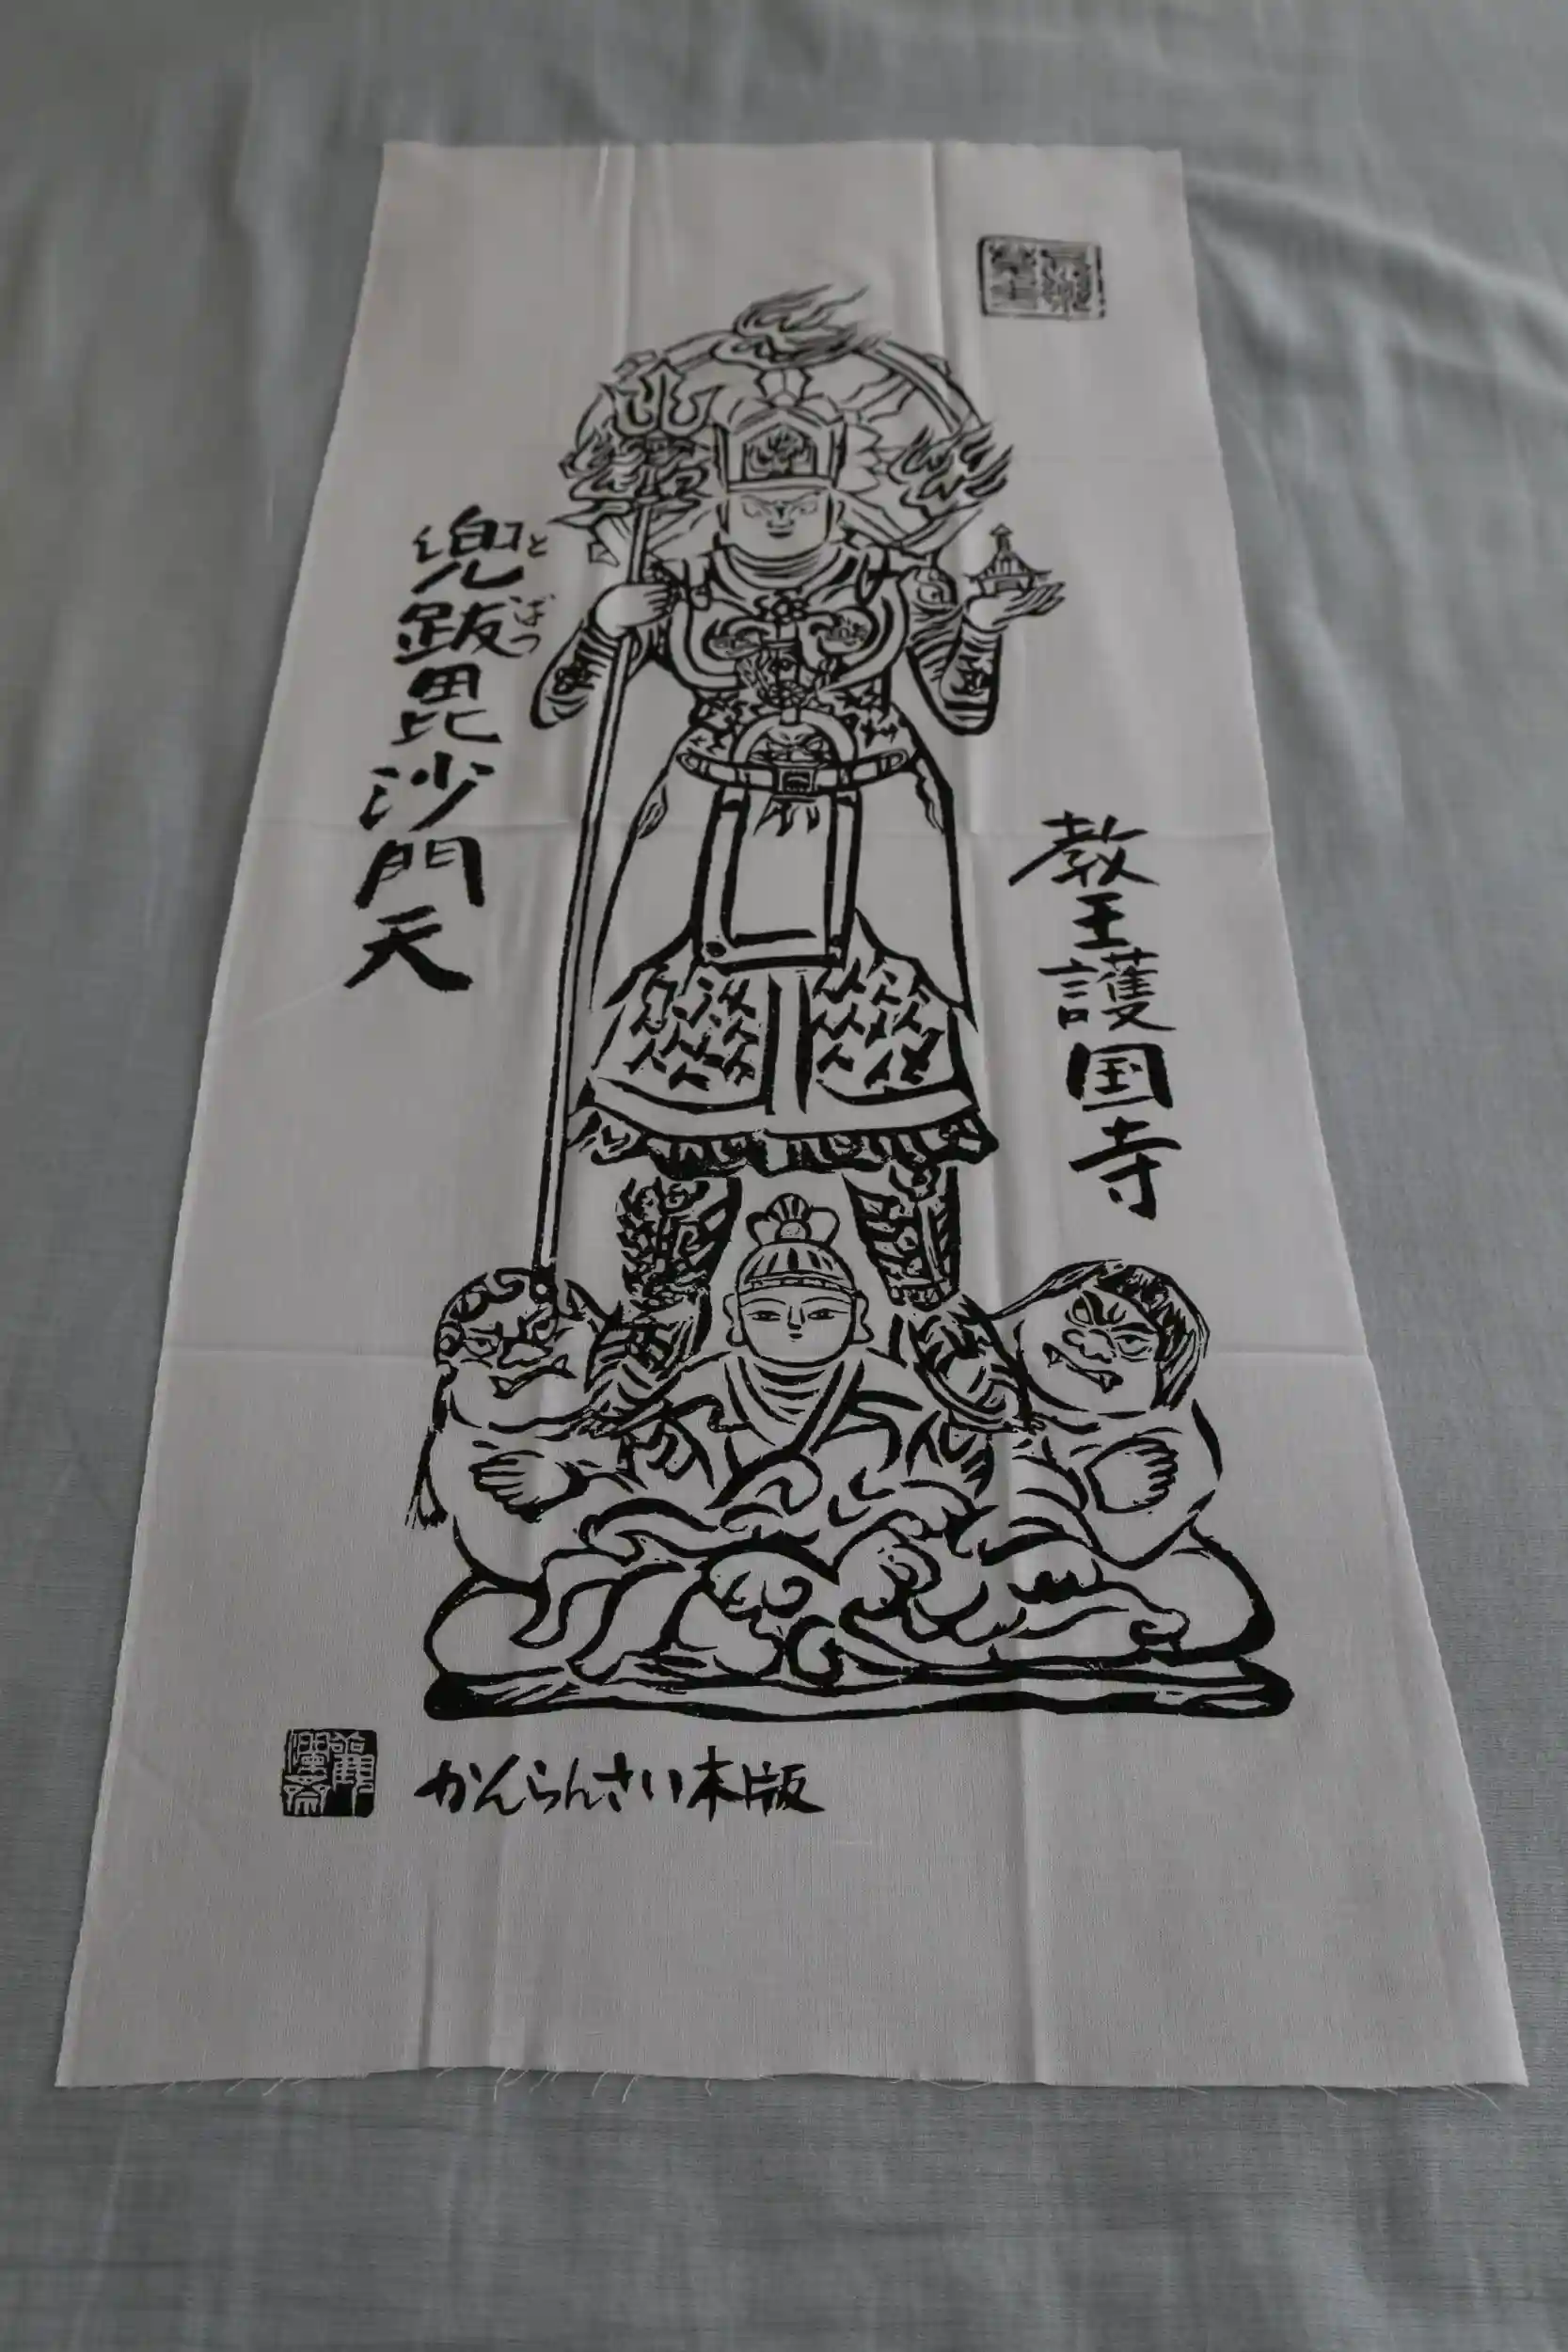 教王護国寺
兜跋毘沙門天
とばつ
かんらんさい木版
觀瀾斎